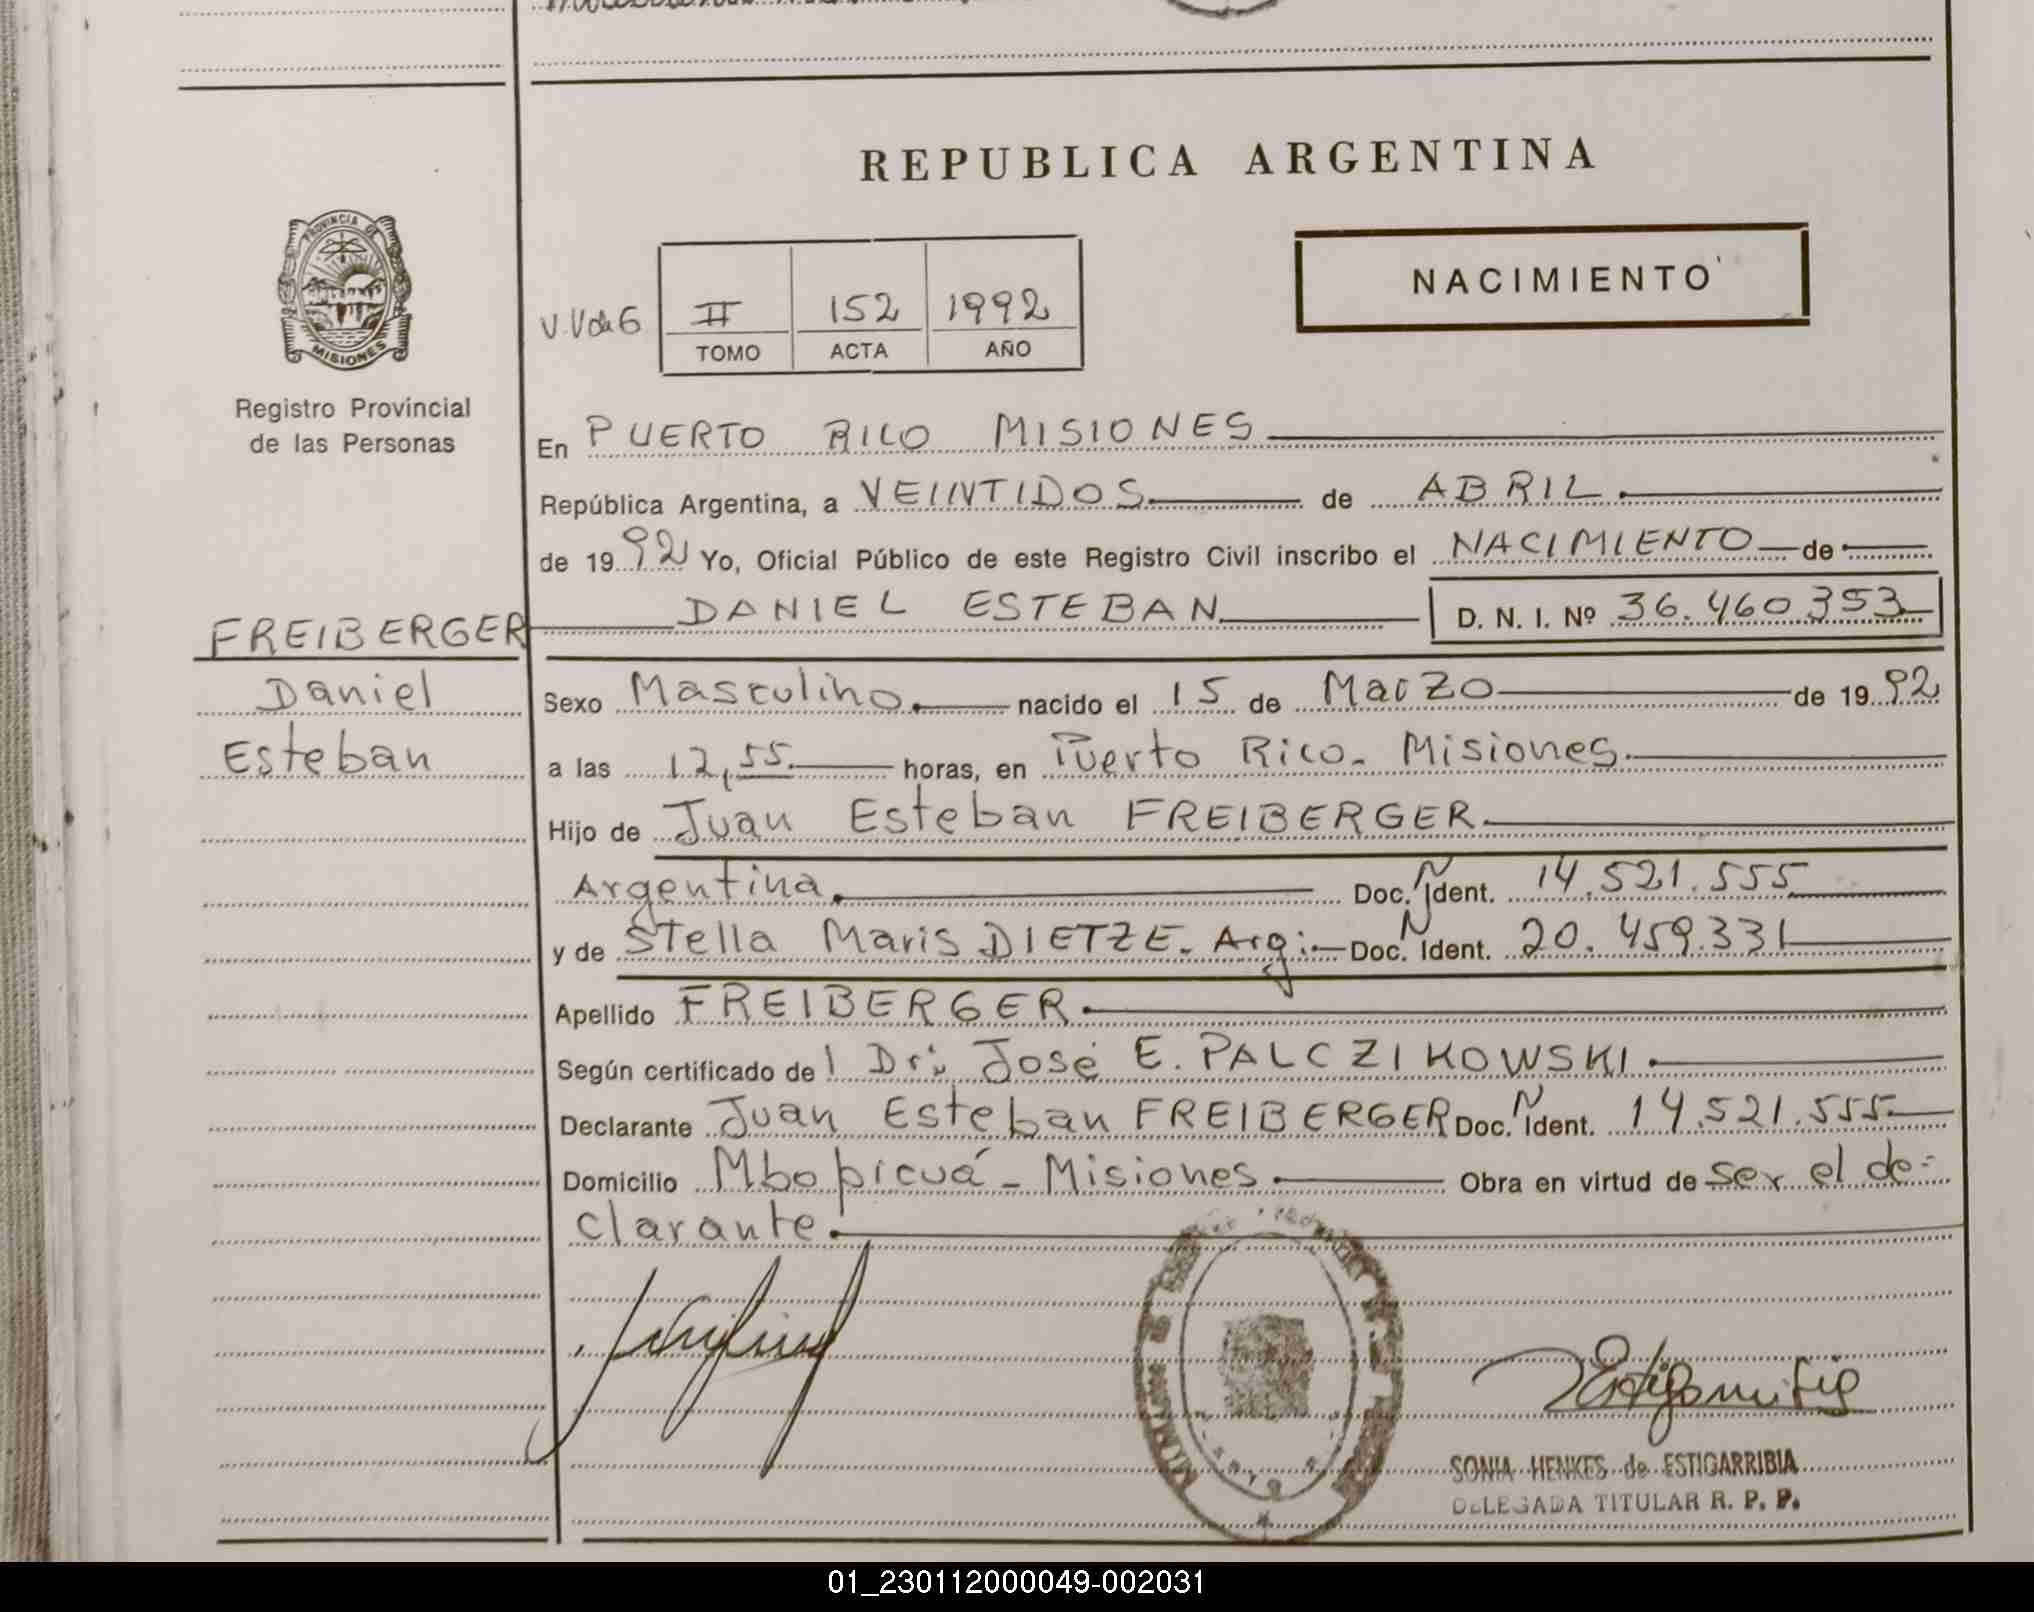 REPUBLICA ARGENTINA
PROVINCIA DE
MISIONES
Registro Provincial
de las Personas
NACIMIENTO
II 152 1992
TOMO ACTA AÑO
En PUERTO RICO MISIONES
República Argentina, a VEINTIDOS de ABRIL
de 1992 Yo, Oficial Público de este Registro Civil inscribo el NACIMIENTO de
FREIBERGER DANIEL ESTEBAN D. N. I. Nº 36.460353
Daniel
Esteban
Sexo Masculino. nacido el 15 de Marzo de 1992
a las 12,55. horas, en Puerto Rico. Misiones.
Hijo de Juan Esteban FREIBERGER
Argentina. Doc. N Ident. 14.521.555
y de Stella Maris DIETZE. Arg: Doc. N Ident. 20.459.331
Apellido FREIBERGER.
Según certificado del Dr: José E. PALCZIKOWSKI.
Declarante Juan Esteban FREIBERGER Doc. N Ident. 14.521.555
Domicilio Mbopicuá - Misiones. Obra en virtud de ser el de-
clarante.
SONIA HENKES de ESTIGARRIBIA
DELEGADA TITULAR R. P. P.
01_230112000049-002031